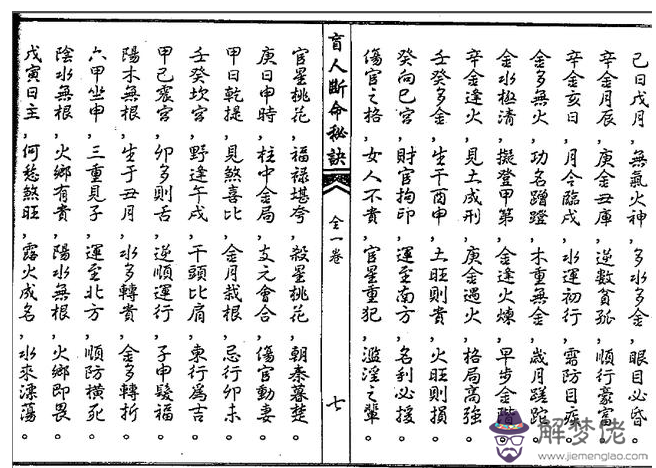 己日戊月，無氣火神，多水多金，眼目必昏。
辛金月辰，庚金丑庫，逆數貧孤，順行豪富。
辛金亥日，月令臨戌，水運初行，需防目疾。
金多無火，功名蹭蹬，木重無金，歲月蹉跎。
金水極清，擬登甲第，金逢火煉，早步金階。
辛金逢火，見土成刑，庚金遇火，格局高強。
壬癸多金，生于酉申，土旺則貴，火旺則損。
癸向巳宮，財官拘印，運至南方，名利必援。
傷官之格，女人不貴，官星重犯，濫淫之輩。
盲人斷命秘訣
全一卷
七
官星桃花，福祿堪夸，殺星桃花，朝秦暮楚。
庚日申時，柱中金局，支元會合，傷官動妻。
甲日乾提，見煞喜比，金月栽根，忌行卯未。
壬癸坎宮，野逢午戌，干頭比肩，東行為吉。
甲己震宮，卯多則舌，逆順運行，子申髮福。
陽木無根，生于丑月，水多轉貴，金多轉折。
六甲坐申，三重見子，運至北方，順防橫死。
陰水無根，火鄉有貴，陽水無根，火鄉即畏。
戊寅日主，何愁煞旺，露火成名，水來漂蕩。
解梦佬
www.jiemenglao.com